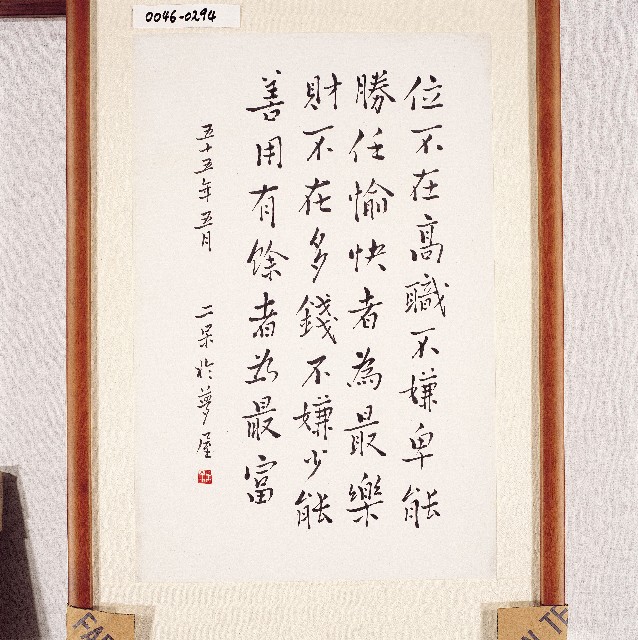 0046-0294
位不在高職不嫌卑能
勝任愉快者為最樂
財不在多錢不嫌少能
善用有餘者為最富
五十五年五月 二呆於夢屋
FAB
N TE